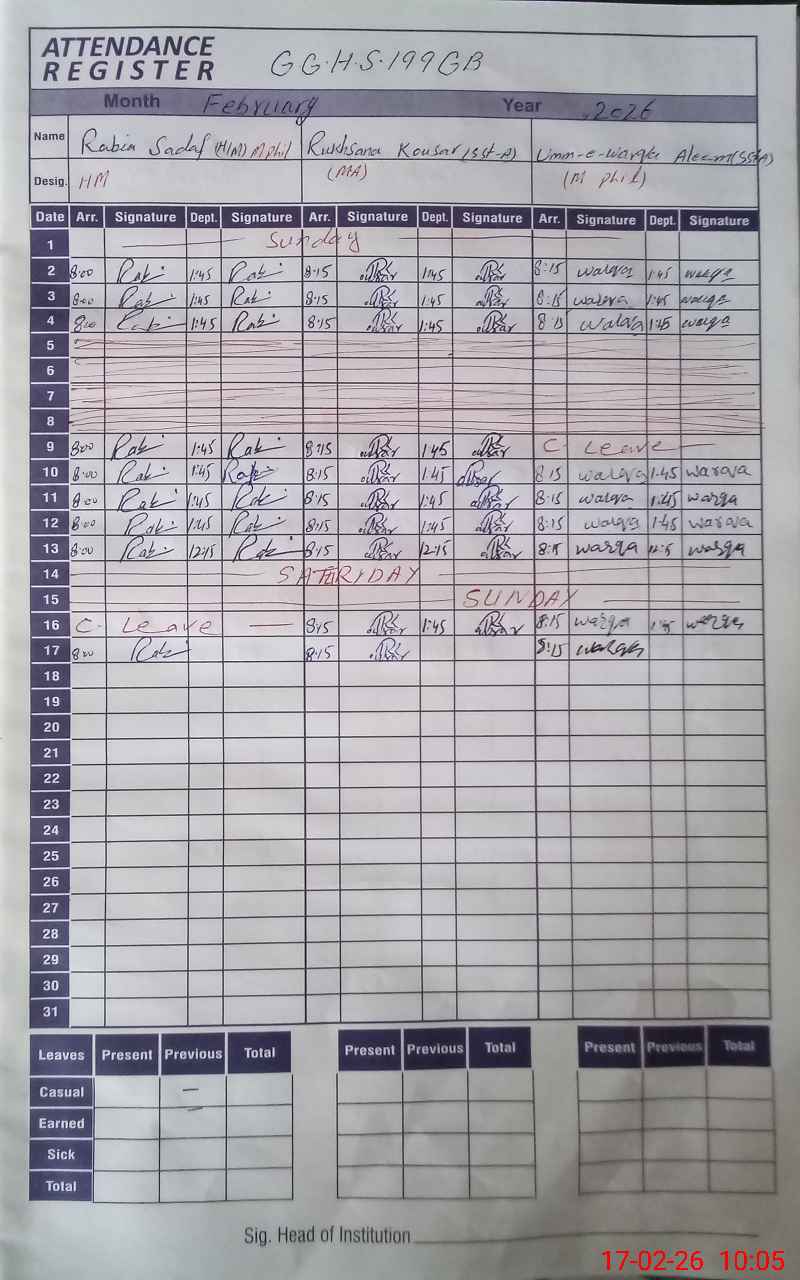 ATTENDANCE REGISTER G.G.H.S. 199 GB
Month February Year 2026
Name Rabia Sadaf (H/M) M phil Rukhsana Kousar (SST-A) Umm-e-Warqa Aleem (SSTA)
Desig. HM (MA) (M phil)
Date Arr. Signature Dept. Signature Arr. Signature Dept. Signature Arr. Signature Dept. Signature
1 Sunday
2 8:00 1:45 8:15 1:45 8:15 warqa 1:45 warqa
3 8:00 1:45 8:15 1:45 8:15 warqa 1:45 warqa
4 8:00 1:45 8:15 1:45 8:15 warqa 1:45 warqa
5
6
7
8
9 8:00 1:45 8:15 1:45 C. Leave
10 8:00 1:45 8:15 1:45 8:15 warqa 1:45 warqa
11 8:00 1:45 8:15 1:45 8:15 warqa 1:45 warqa
12 8:00 1:45 8:15 1:45 8:15 warqa 1:45 warqa
13 8:00 12:15 8:15 12:15 8:15 warqa warqa
14 SATURDAY
15 SUNDAY
16 C. Leave 8:15 1:45 8:15 warqa warqa
17 8:00 8:15 8:15 warqa
18
19
20
21
22
23
24
25
26
27
28
29
30
31
Leaves Present Previous Total Present Previous Total Present Previous Total
Casual
Earned
Sick
Total
Sig. Head of Institution
17-02-26 10:05